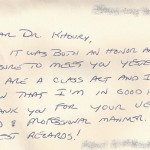 AR DR. KHOURY,
IT WAS BOTH AN HONOR AN
SIRE TO MEET YOU YESTE
ARE A CLASS ACT AND I
N THAT I'M IN GOOD H
ANK YOU FOR YOUR VE
& PROFESSIONAL MANNER.
EST REGARDS!